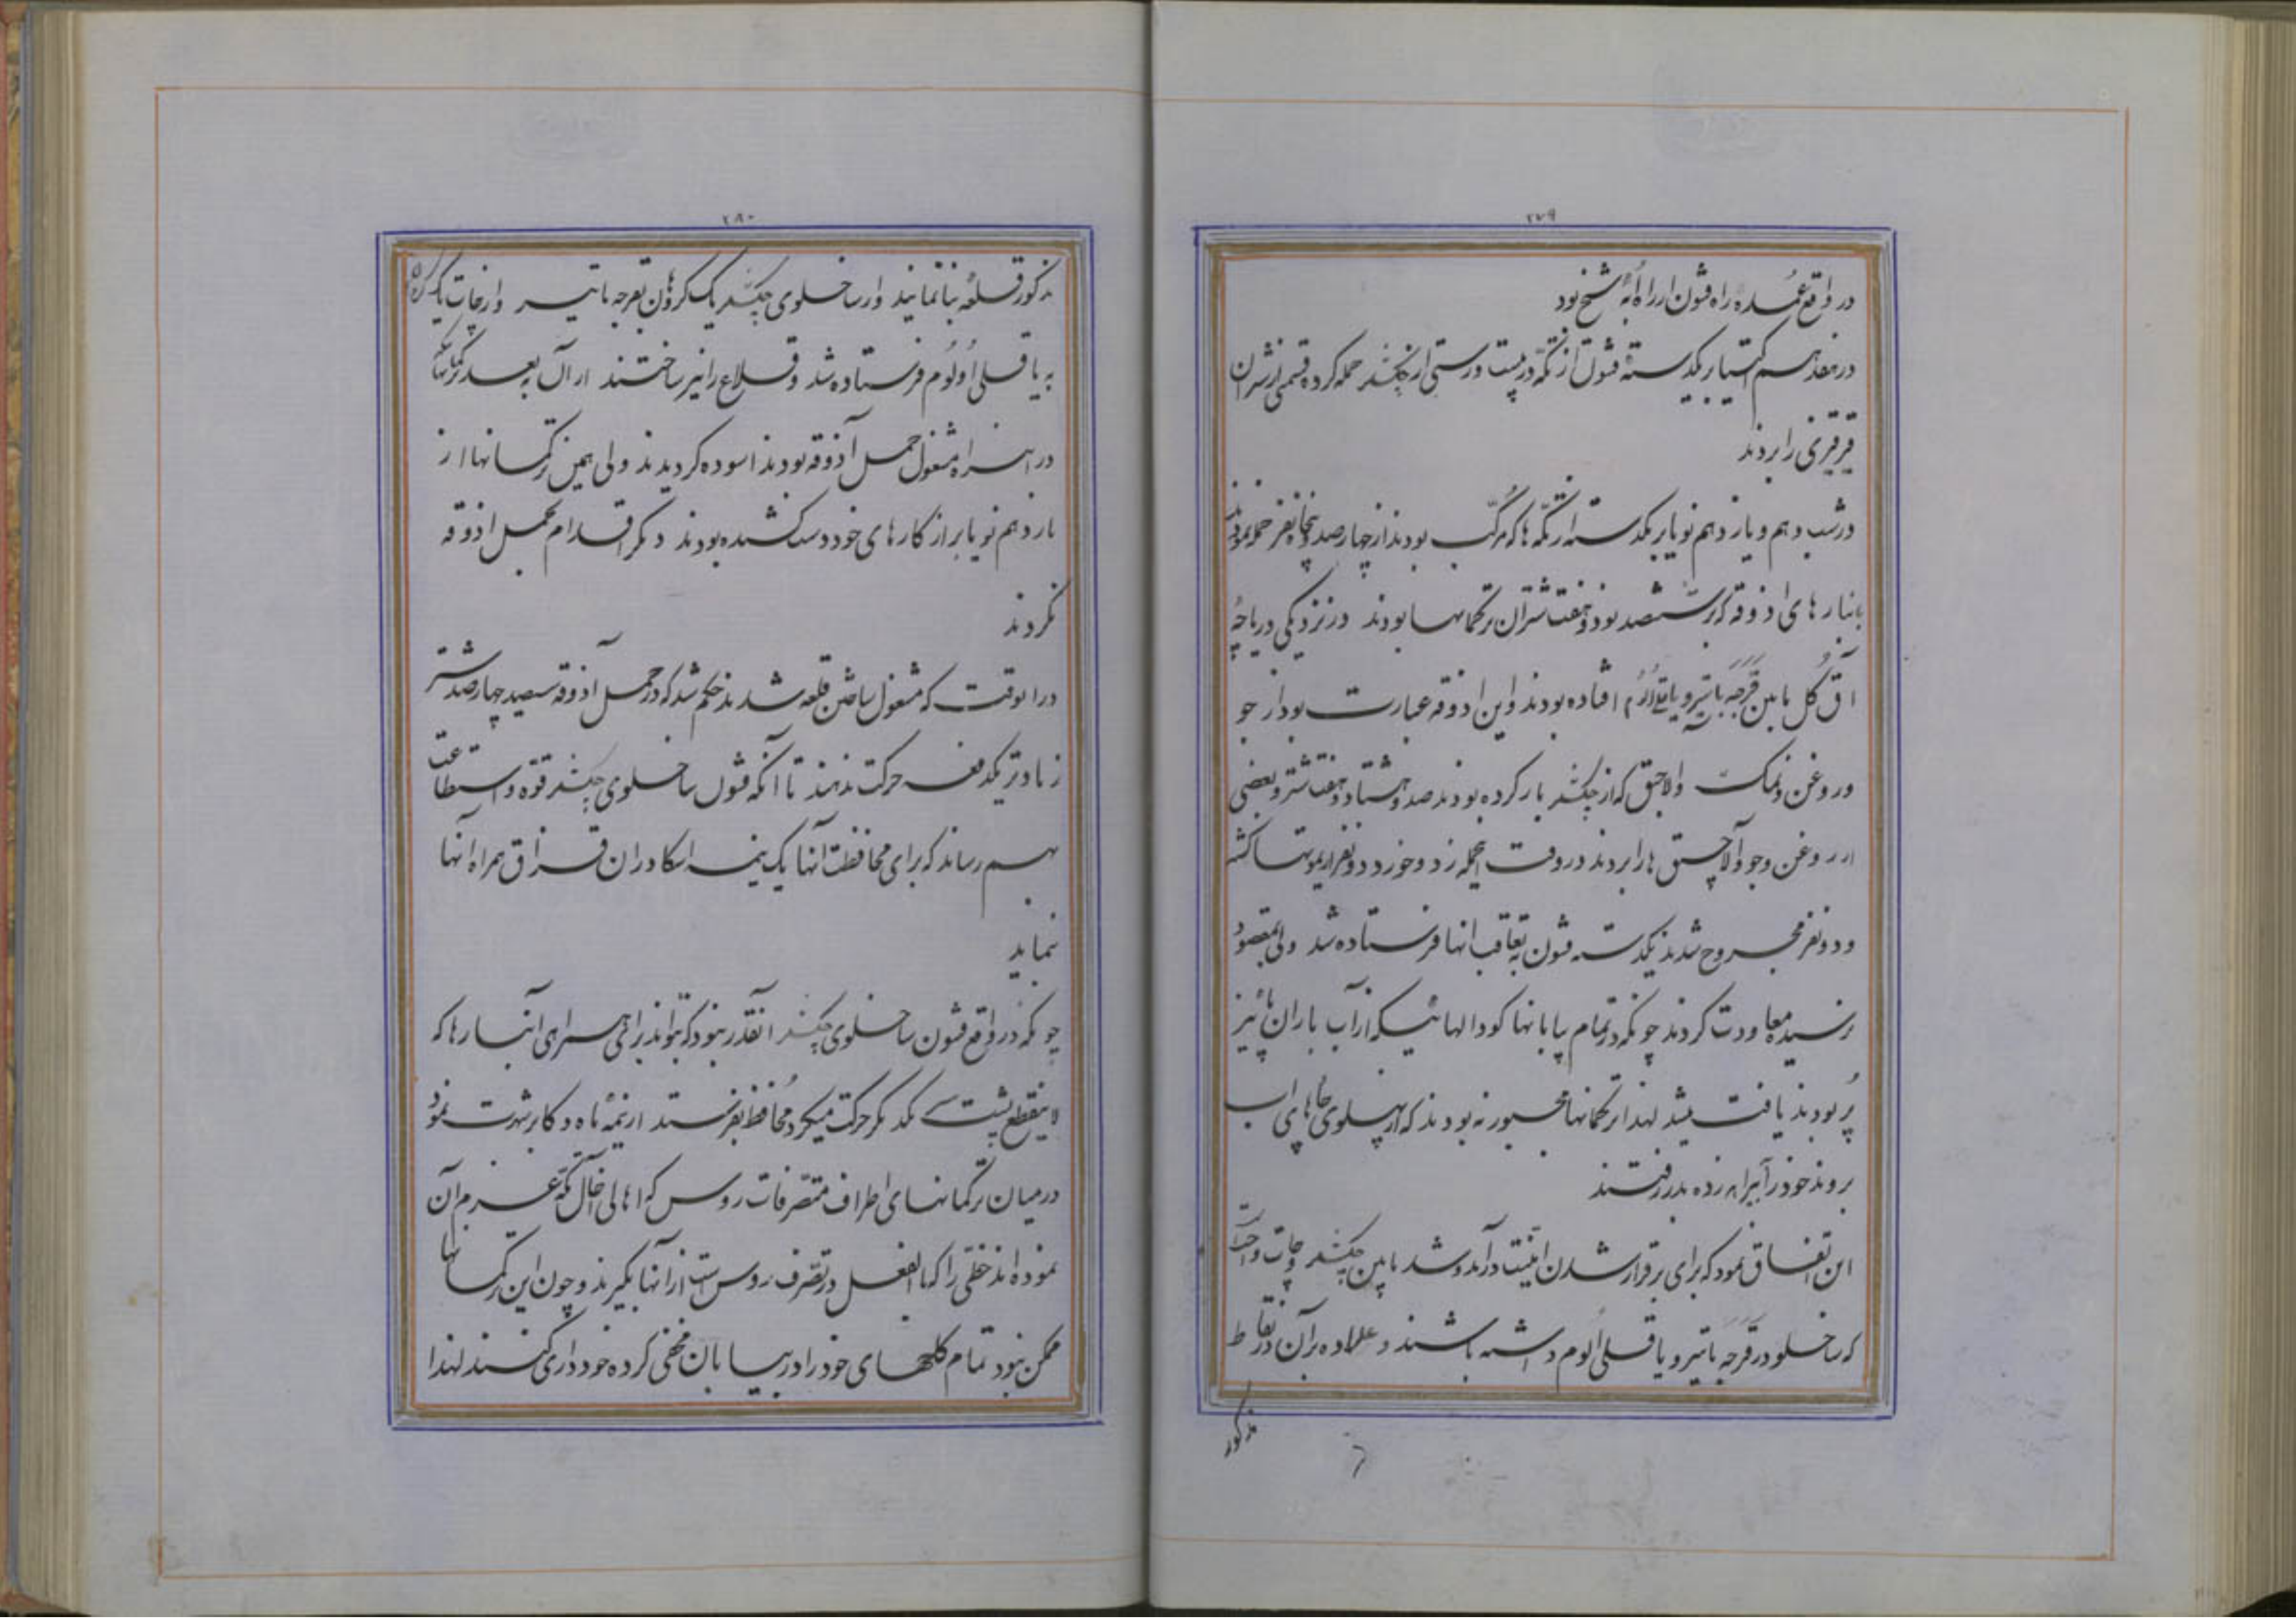 ۲۷۹
در واقع عمده راه قشون از راه ابه شیخ بود
در هفدهم اکتیابر یکدسته قشون از تکه در بیست ورستی از چکشلر حمله کرده قسمی از شتران
قرقزی را بردند
در شب دهم و یازدهم نویابر یکدسته از تکه ها که مرکب بودند از چهارصد پنجاه نفر حمله نمودند
بانبارهای اذوقه که بر ششصد بود و هفت شتران ترکمانها بودند در نزدیکی دریاچهٔ
آق گل مابین قرجه باتیر و یاقلی اولوم افتاده بودند و این اذوقه عبارت بود از جو
و روغن و نمک و الاجق که از چکشلر بار کرده بودند صد و هشتاد و هفت شتر و بعضی
از روغن و جو و آلاچیق ها را بردند در وقت حمله زد و خورد دو نفر از یموتها کشته
و دو نفر مجروح شدند یکدسته قشون به تعاقب انها فرستاده شد ولی بمقصود
نرسیده معاودت کردند چونکه در تمام بیابانها کودالهائیکه از آب باران پائیز
پر بودند یافت میشد لهذا ترکمانها مجبور نه بودند که از پهلوی چاههای اب
بروند خود را به بیراهه زده بدر رفتند
این اتفاق نمود که برای برقرار شدن امنیت در آمد و شد مابین چکشلر و چات واجب است
که ساخلو در قرجه باتیر و یاقلی الوم داشته باشند و علاوه بر آن در نقاط
مذکور
۲۸۰
مذکور قلعه بنا نمایند و از ساخلوی چکشلر یک کروهان بقرجه باتیر و از چات یک کروهان
به یاقلی اولوم فرستاده شد و قلاع را نیز ساختند از آن به بعد ترکمانهائیکه
در این راه مشغول حمل آذوقه بودند اسوده کردیدند ولی همین ترکمانها از
یازدهم نویابر از کارهای خود دست کشیده بودند و دیگر اقدام بحمل اذوقه
نکردند
در انوقت که مشغول ساختن قلعه شدند حکم شد که در حمل آذوقه سیصد چهارصد شتر
زیادتر یکدفعه حرکت ندهند تا آنکه قشون ساخلوی چکشلر قوه و استطاعت
بهم رساند که برای محافظت آنها یک نیمه اسکادران قزاق همراه انها
نماید
چونکه در واقع قشون ساخلوی چکشلر انقدر نبود که بتواند برای همراهی انبارها که
لاینقطع پشت سر یکدیگر حرکت میکرد محافظ بفرستد از نیمهٔ ماه دکابر شهرت نمود
در میان ترکمانهای اطراف متصرفات روس که اهالی اخال تکه عزم آن
نموده اند خطی را که بالفعل در تصرف روس است از آنها بگیرند و چون این ترکمانها
ممکن نبود تمام کله های خود را در بیابان مخفی کرده خودداری کنند لهذا